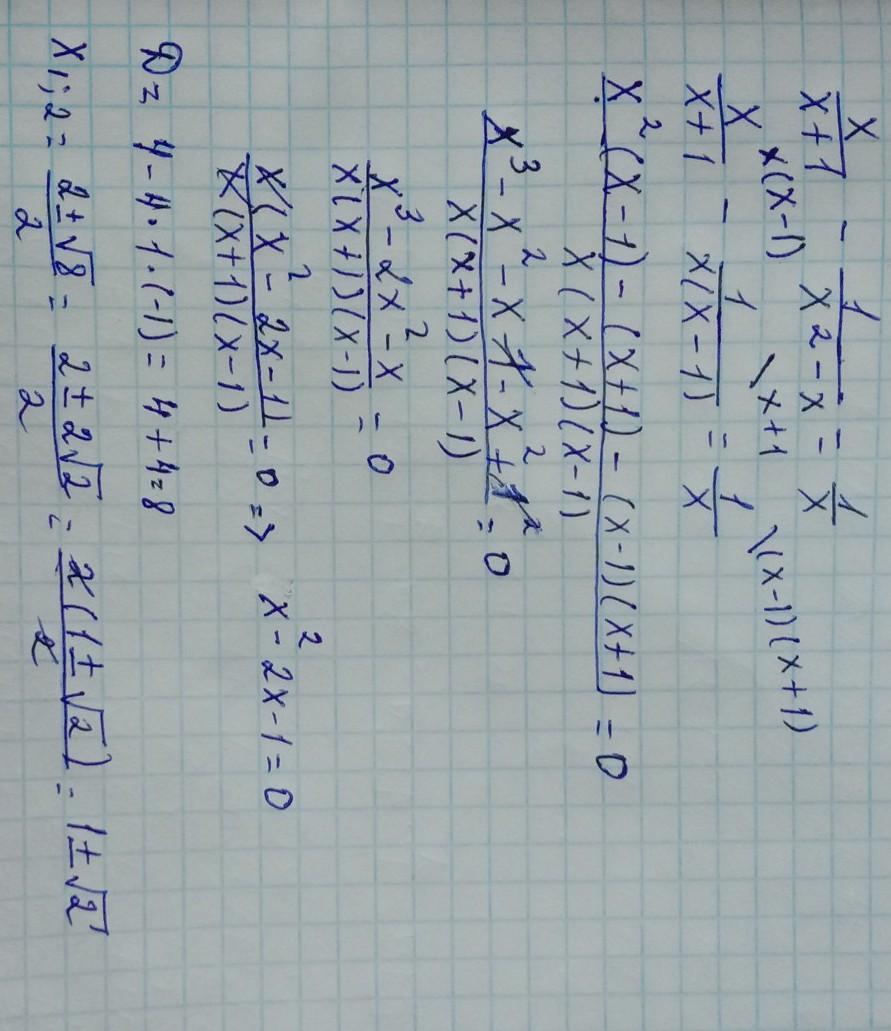 x/(x+1) - 1/(x2-x) = 1/x
x/(x+1) \x(x-1) - 1/(x(x-1)) \x+1 = 1/x \(x-1)(x+1)
(x²(x-1) - (x+1) - (x-1)(x+1))/(x(x+1)(x-1)) = 0
(x³ - x² - x - 1 - x² + 1)/(x(x+1)(x-1)) = 0
(x³ - 2x² - x)/(x(x+1)(x-1)) = 0
(x(x² - 2x - 1))/(x(x+1)(x-1)) = 0 => x² - 2x - 1 = 0
D = 4 - 4·1·(-1) = 4 + 4 = 8
x1;2 = (2±√8)/2 = (2±2√2)/2 = 2(1±√2)/2 = 1±√2